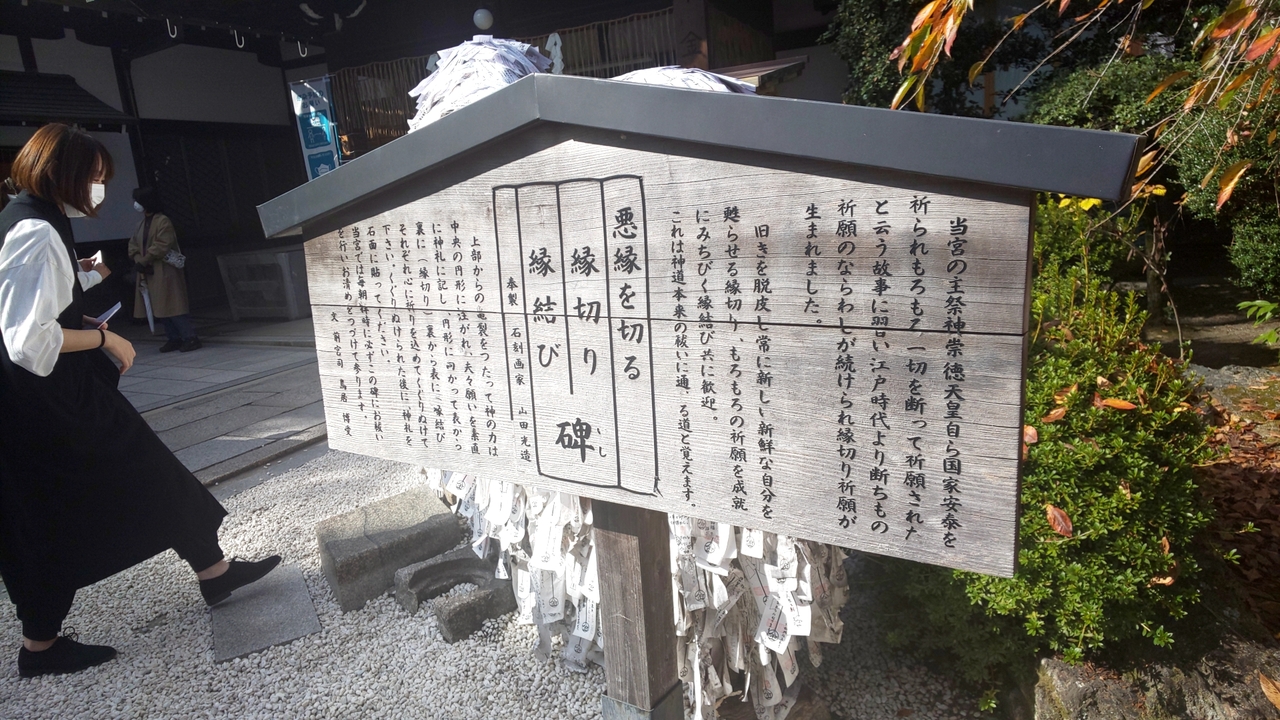 当宮の主祭神崇徳天皇自ら国家安泰を
祈られもろもろ一切を断って祈願された
と云う故事に習い江戸時代より断ちもの
祈願のならわしが続けられ縁切り祈願が
生まれました。
旧きを脱皮し常に新しい新鮮な自分を
甦らせる縁切り、もろもろの祈願を成就
にみちびく縁結び共に歓迎。
これは神道本来の祓いに通ずる道と覚えます。
悪縁を切る
縁切り
縁結び
碑
いし
奉製 石刻画家 山田光造
上部からの亀裂をつたって神の力は
中央の円形に注がれ、夫々願いを素直
に神札に記し、円形に向かって表から
裏に(縁切り)裏から表に(縁結び)
それぞれ心に祈りを込めてくぐりぬけて
下さい。くぐりぬけられた後に、神札を
石面に貼ってください。
当宮では毎朝拝時に必ずこの碑にお祓い
を行いお清めをつけて参ります。
文 前宮司 鳥居 博愛